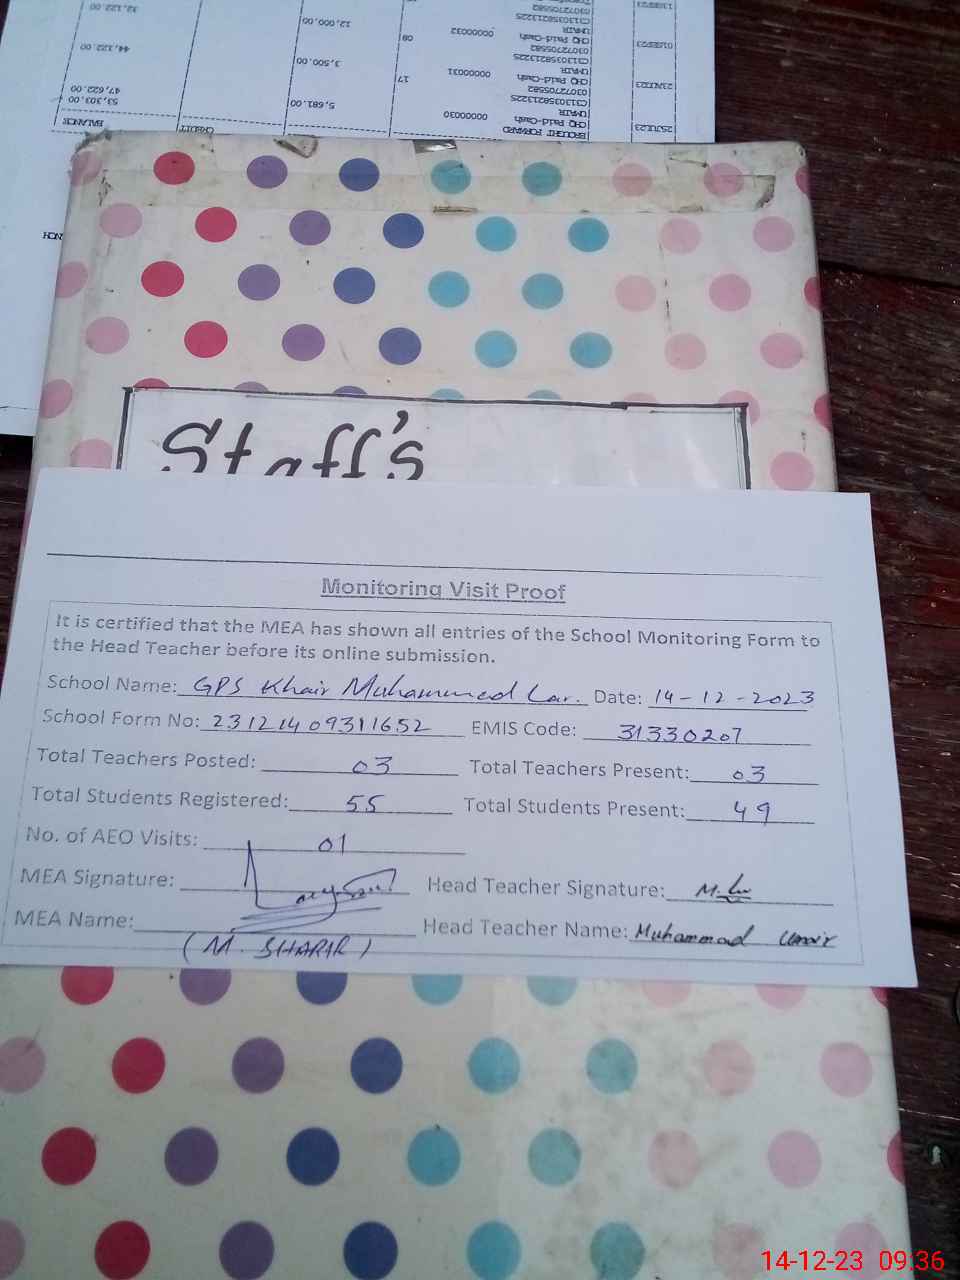 32,122.00
12,000.00
13SEP23
03072705582
C1130358213225
UMAIR
00000032
09
CHQ Paid-Cash
01SEP23
44,122.00
3,500.00
03072705582
C1130358213225
UMAIR
00000031
17
CHQ Paid-Cash
47,622.00
03072705582
C1130358213225
UMAIR
53,303.00
5,681.00
00000030
CHQ Paid-Cash
25JUL23
BROUGHT FORWARD
BALANCE
CREDIT
Staff's
Monitoring Visit Proof
It is certified that the MEA has shown all entries of the School Monitoring Form to
the Head Teacher before its online submission.
School Name: GPS Khair Muhammed Lar. Date: 14-12-2023
School Form No: 231214 09311652 EMIS Code: 31330207
Total Teachers Posted: 03 Total Teachers Present: 03
Total Students Registered: 55 Total Students Present: 49
No. of AEO Visits: 01
MEA Signature: Head Teacher Signature:
MEA Name: Head Teacher Name: Muhammad Umair
14-12-23 09:36